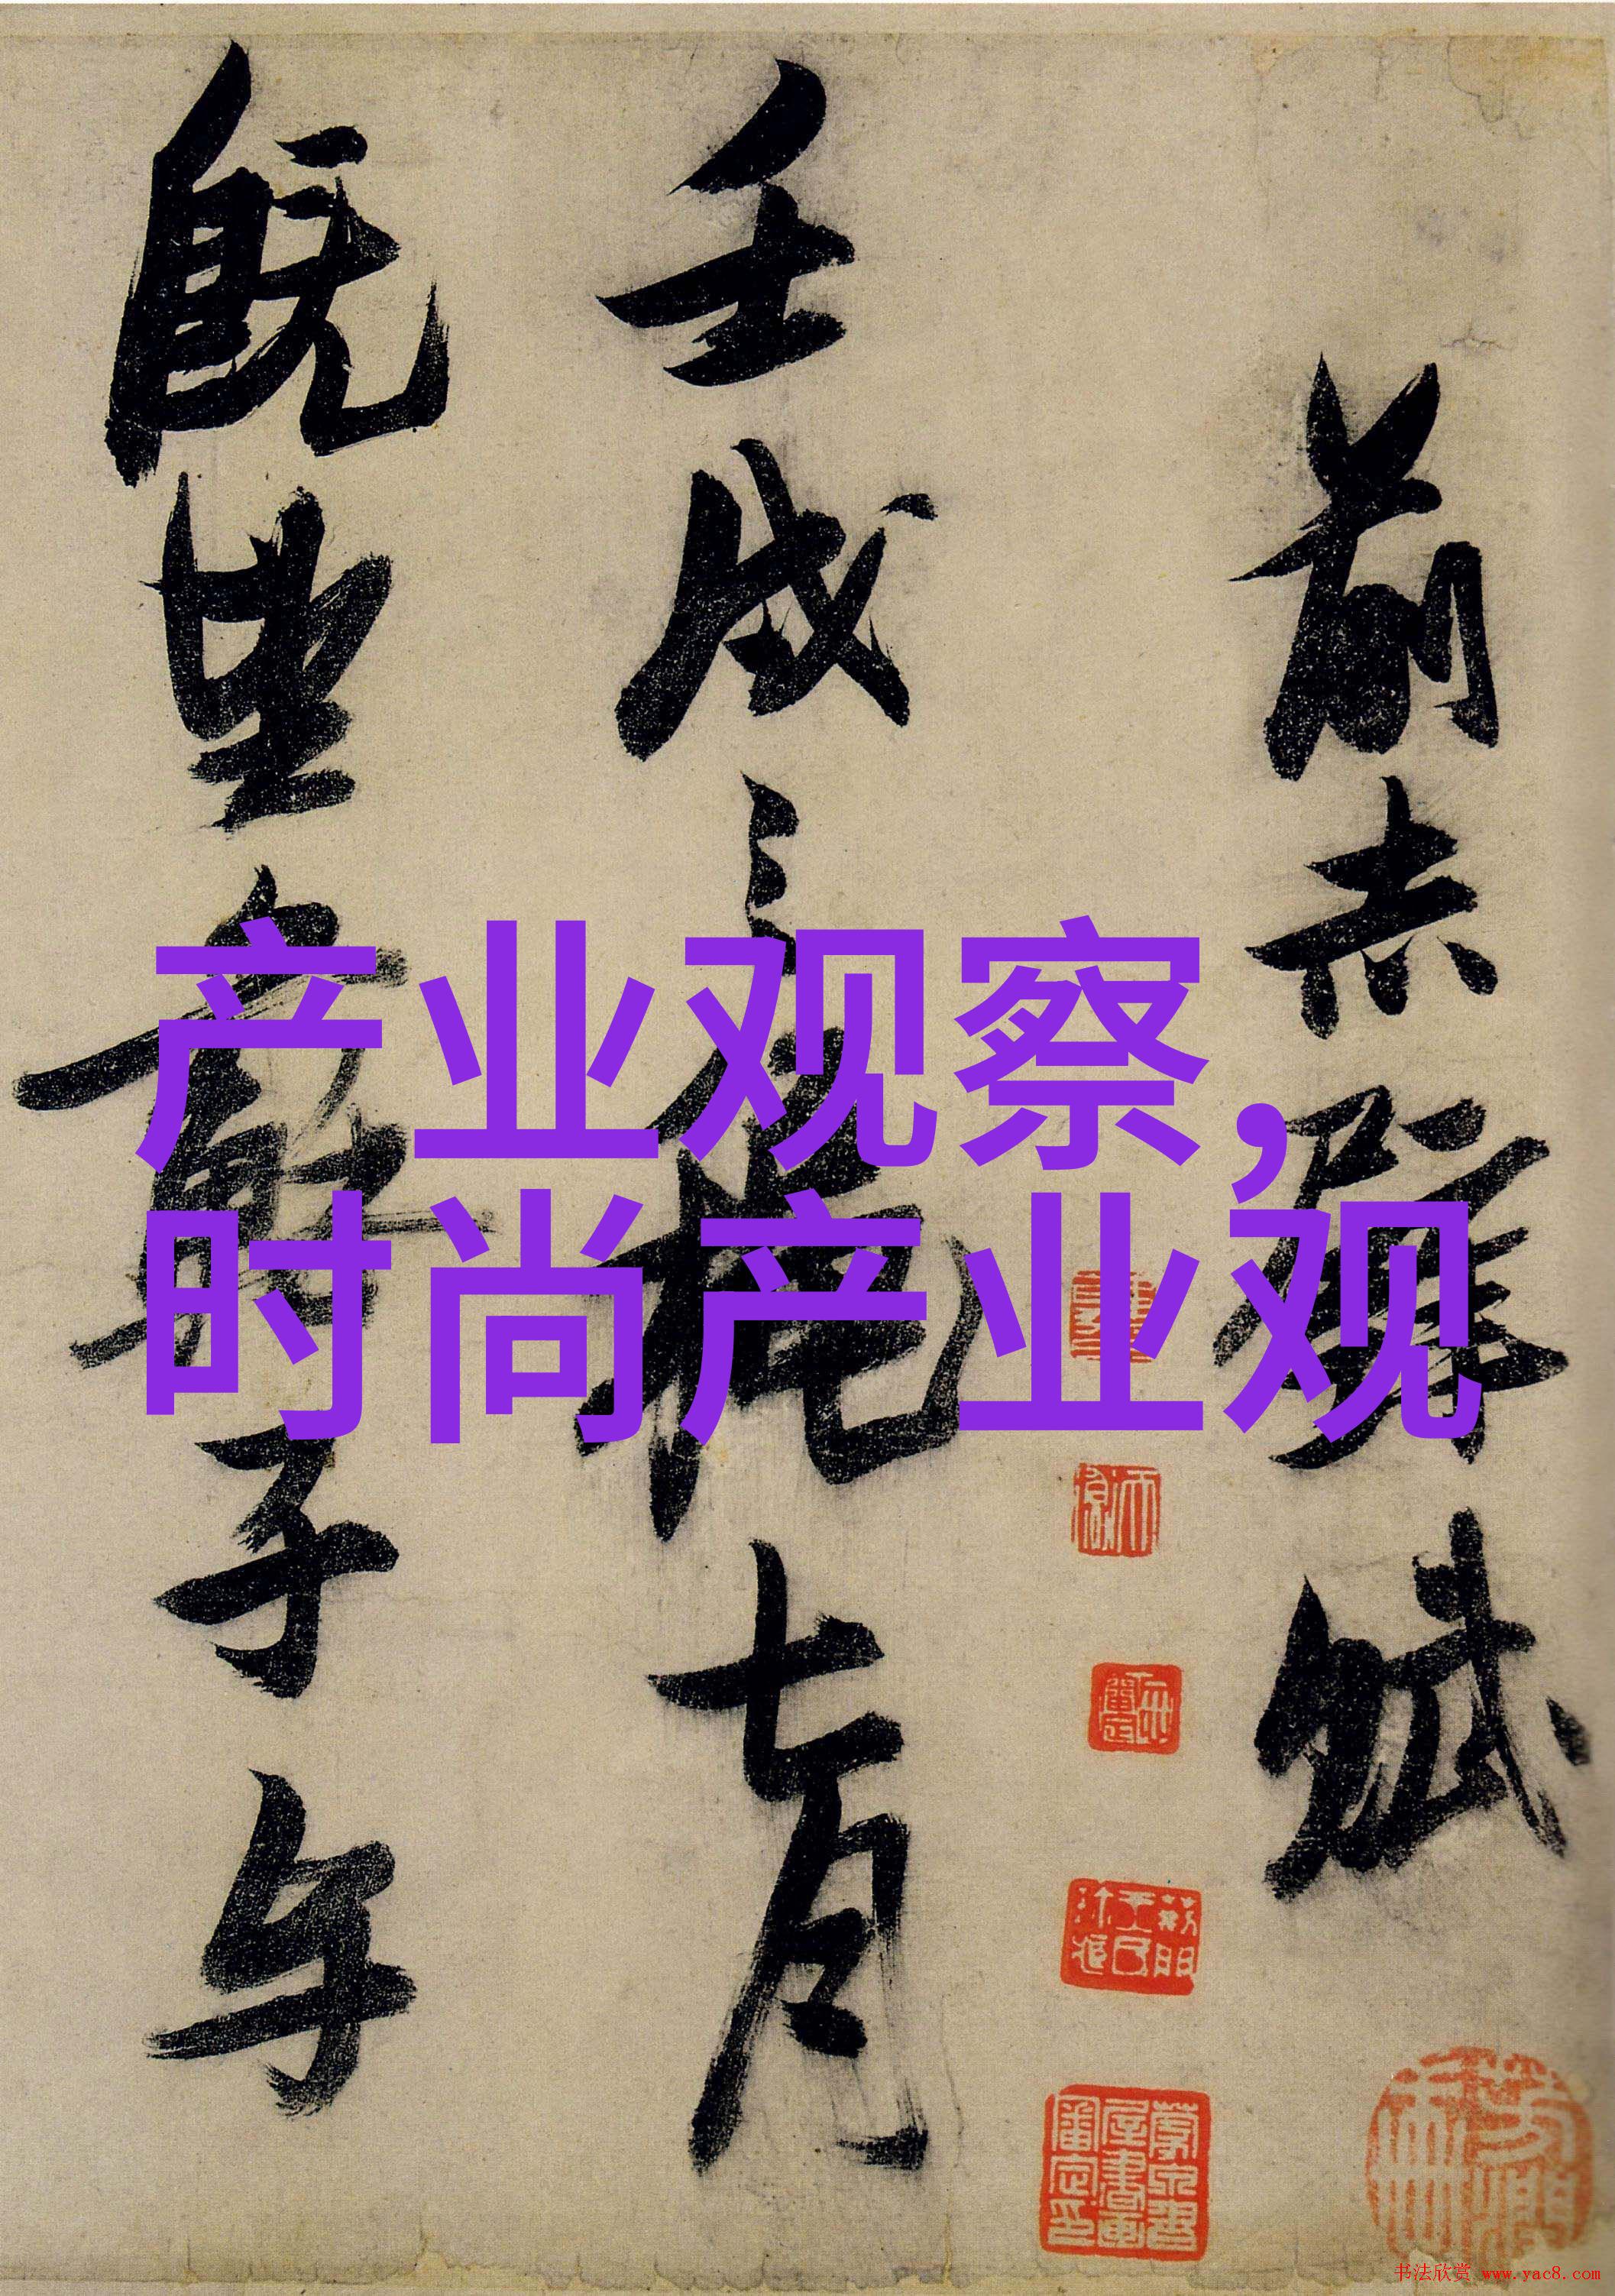 前赤壁赋
壬戌之秋七月
既望苏子与
产业观察，
时尚产业观
书法欣赏 www.yac8.com